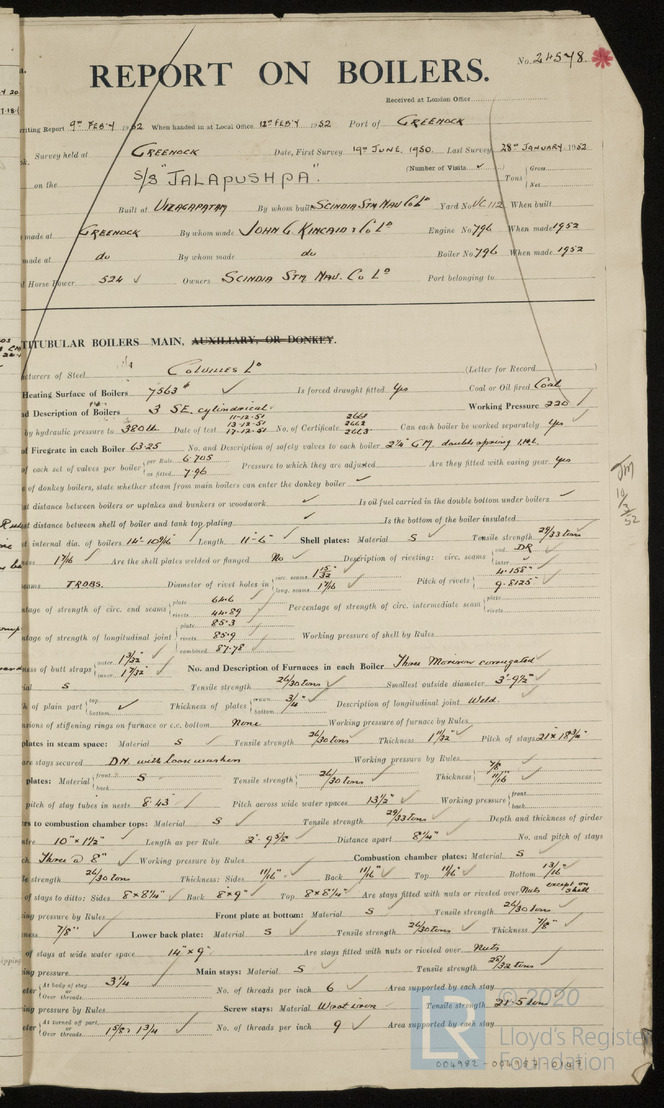 No. 24578
REPORT ON BOILERS.
Received at London Office
writing Report 9TH FEB'Y 1952 When handed in at Local Office 12TH FEB'Y 1952 Port of GREENOCK
Survey held at GREENOCK Date, First Survey 19TH JUNE, 1950. Last Survey 28TH JANUARY 1952
on the S/S "JALAPUSHPA". (Number of Visits ) Tons { Gross Net
Built at VIZAGAPATAM By whom built SCINDIA STM NAV CO LD Yard No VC 112 When built
made at GREENOCK By whom made JOHN G KINCAID & CO LD Engine No 796 When made 1952
made at do By whom made do Boiler No 796 When made 1952
Horse Power 524 ✓ Owners SCINDIA STM NAV. CO LD Port belonging to
TITUBULAR BOILERS MAIN, AUXILIARY, OR DONKEY.
cturers of Steel Colvilles LD (Letter for Record )
Heating Surface of Boilers 7563 ✓ Is forced draught fitted Yes Coal or Oil fired Coal
nd Description of Boilers 3 SE. cylindrical Working Pressure 220
by hydraulic pressure to 380 lb Date of test 11-12-51 13-12-51 17-12-51 No. of Certificate 2661 2662 2663 Can each boiler be worked separately Yes
of Firegrate in each Boiler 63.25 No. and Description of safety valves to each boiler 2¼" G.M. double spring
of each set of valves per boiler { per Rule 6.705 as fitted 7.96 Pressure to which they are adjusted Are they fitted with easing gear Yes
of donkey boilers, state whether steam from main boilers can enter the donkey boiler ✓
st distance between boilers or uptakes and bunkers or woodwork ✓ Is oil fuel carried in the double bottom under boilers ✓
st distance between shell of boiler and tank top plating ✓ Is the bottom of the boiler insulated
st internal dia. of boilers 14'-10 9/16" Length 11'-6" Shell plates: Material S Tensile strength 29/33 tons
1 7/16 Are the shell plates welded or flanged No Description of riveting: circ. seams { end DR inter. ✓
eams TRDBS. Diameter of rivet holes in { circ. seams 1 15/32" long. seams 1 7/16 Pitch of rivets { 4.155" 9.8125"
tage of strength of circ. end seams { plate 64.6 rivets 44.89 Percentage of strength of circ. intermediate seam { plate rivets
tage of strength of longitudinal joint { plate 85.3 rivets 85.9 combined 87.78 Working pressure of shell by Rules
ness of butt straps { outer 1 3/32" inner 1 7/32" No. and Description of Furnaces in each Boiler Three Morison corrugated
ial S Tensile strength 26/30 tons Smallest outside diameter 3'-9½"
h of plain part { top bottom ✓ Thickness of plates { crown bottom 3/4" Description of longitudinal joint Weld.
nsions of stiffening rings on furnace or c.c. bottom None Working pressure of furnace by Rules
plates in steam space: Material S Tensile strength 26/30 tons Thickness 1 11/32" Pitch of stays 21" x 18¾"
are stays secured DN. with loose washers Working pressure by Rules
plates: Material { front back S Tensile strength { 26/30 tons Thickness { 7/8" 11/16"
pitch of stay tubes in nests 8.43 Pitch across wide water spaces 13½" Working pressure { front back
rs to combustion chamber tops: Material S Tensile strength 29/33 tons Depth and thickness of girder
ntre 10" x 1½" Length as per Rule 2'-9 5/8" Distance apart 8¼" No. and pitch of stays
ch Three @ 8" Working pressure by Rules Combustion chamber plates: Material S
le strength 26/30 tons Thickness: Sides 11/16" Back 11/16" Top 11/16" Bottom 13/16"
of stays to ditto: Sides 8" x 8¼" Back 8" x 9" Top 8" x 8¼" Are stays fitted with nuts or riveted over Nuts except on shell
ing pressure by Rules Front plate at bottom: Material S Tensile strength 26/30 tons
ness 7/8" Lower back plate: Material S Tensile strength 26/30 tons Thickness 7/8"
of stays at wide water space 14" x 9" Are stays fitted with nuts or riveted over Nuts
ing pressure Main stays: Material S Tensile strength 28/32 tons
eter { At body of stay or Over threads 3¼ No. of threads per inch 6 Area supported by each stay
ing pressure by Rules Screw stays: Material Wrot iron Tensile strength 21.5 tons
eter { At turned off part or Over threads 1 5/8 & 1 3/4 No. of threads per inch 9 Area supported by each stay
© 2020
LR
Lloyd's Register
Foundation
004982 - 004987 - 0147